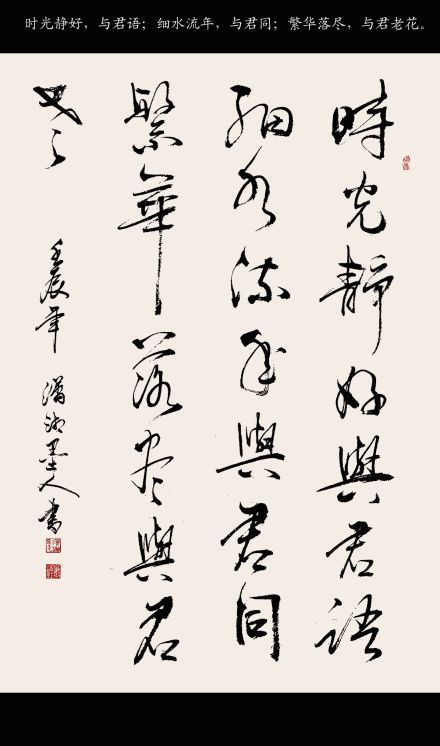 时光静好，与君语；细水流年，与君同；繁华落尽，与君老花。
時光静好與君語
細水流年與君同
繁華落尽與君
老
壬辰年 潇湘墨人書